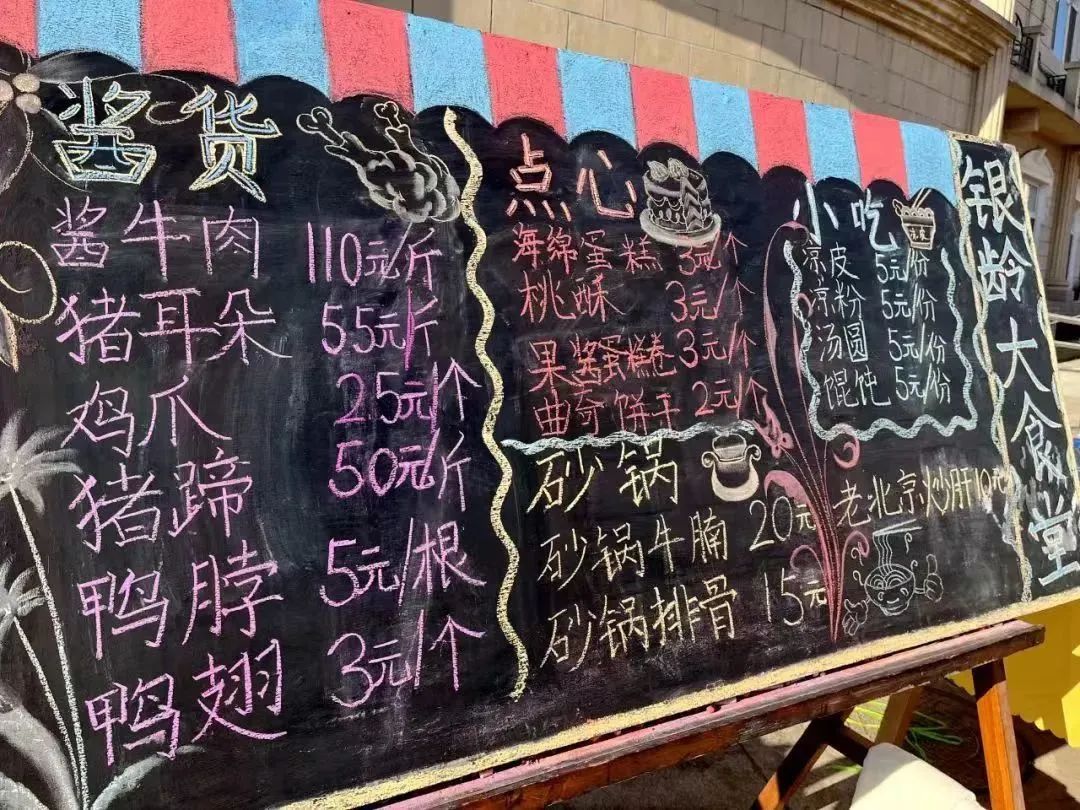 酱货
酱牛肉 110元/斤
猪耳朵 55元/斤
鸡爪 25元/个
猪蹄 50元/斤
鸭脖 5元/根
鸭翅 3元/个
点心
海绵蛋糕 3元/个
桃酥 3元/个
果酱蛋糕卷 3元/个
曲奇饼干 2元/个
砂锅
砂锅牛腩 20元
砂锅排骨 15元
小吃
凉皮 5元/份
凉粉 5元/份
汤圆 5元/份
馄饨 5元/份
老北京炒肝10元
银龄大食堂